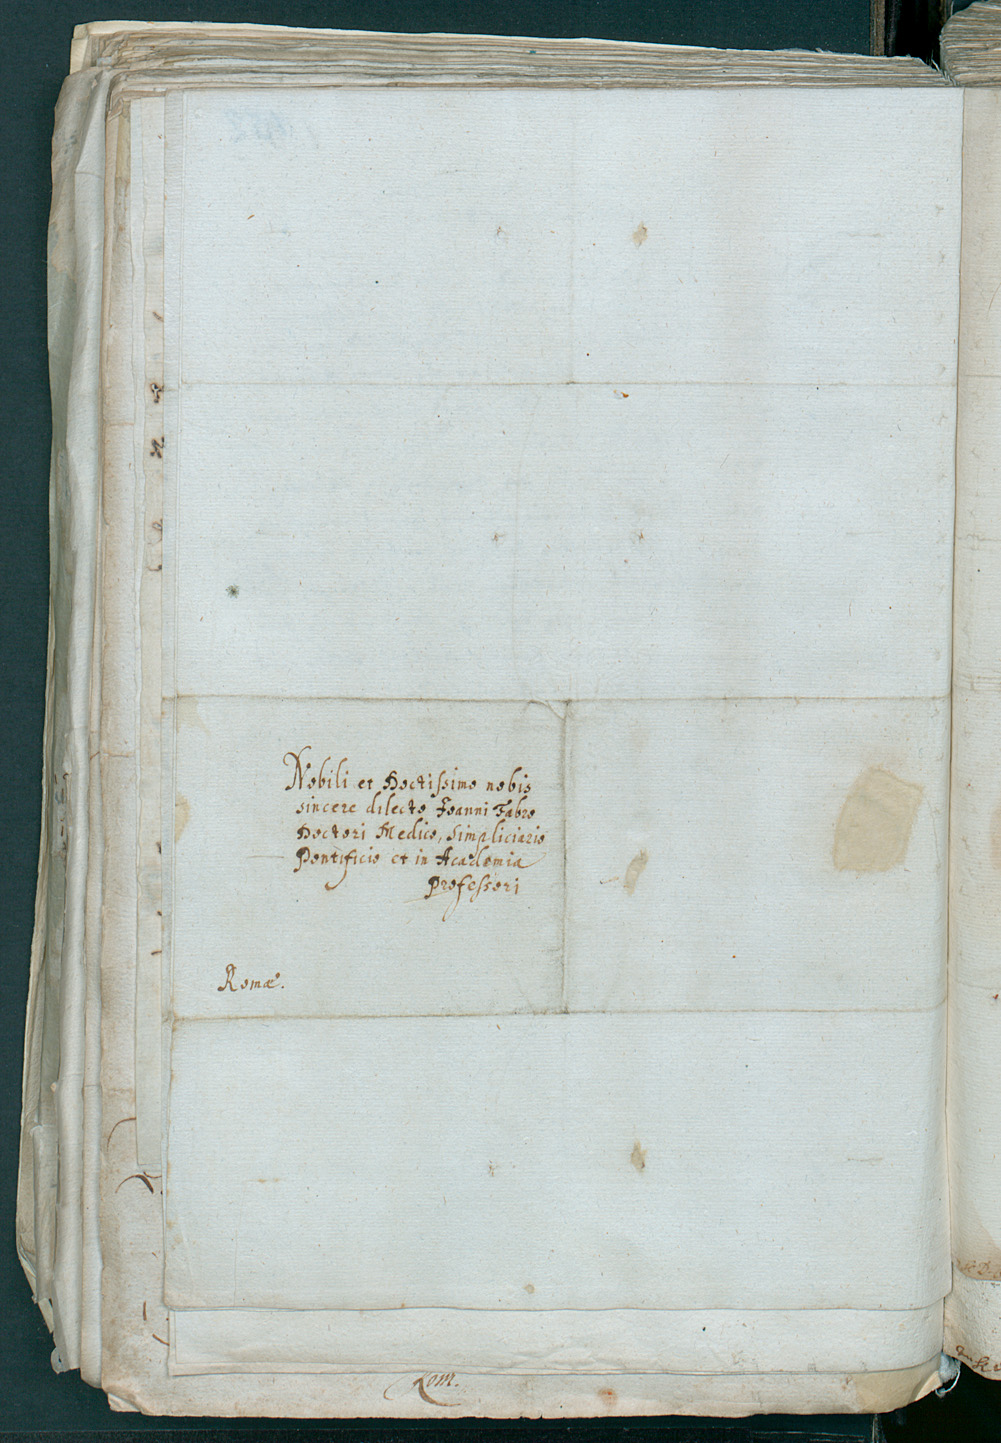 Nobili et Doctissimo nobis
sincere dilecto Joanni Fabro
Doctori Medico, Simpliciario
Pontificio et in Academia
Professori
Romæ.
Rom.